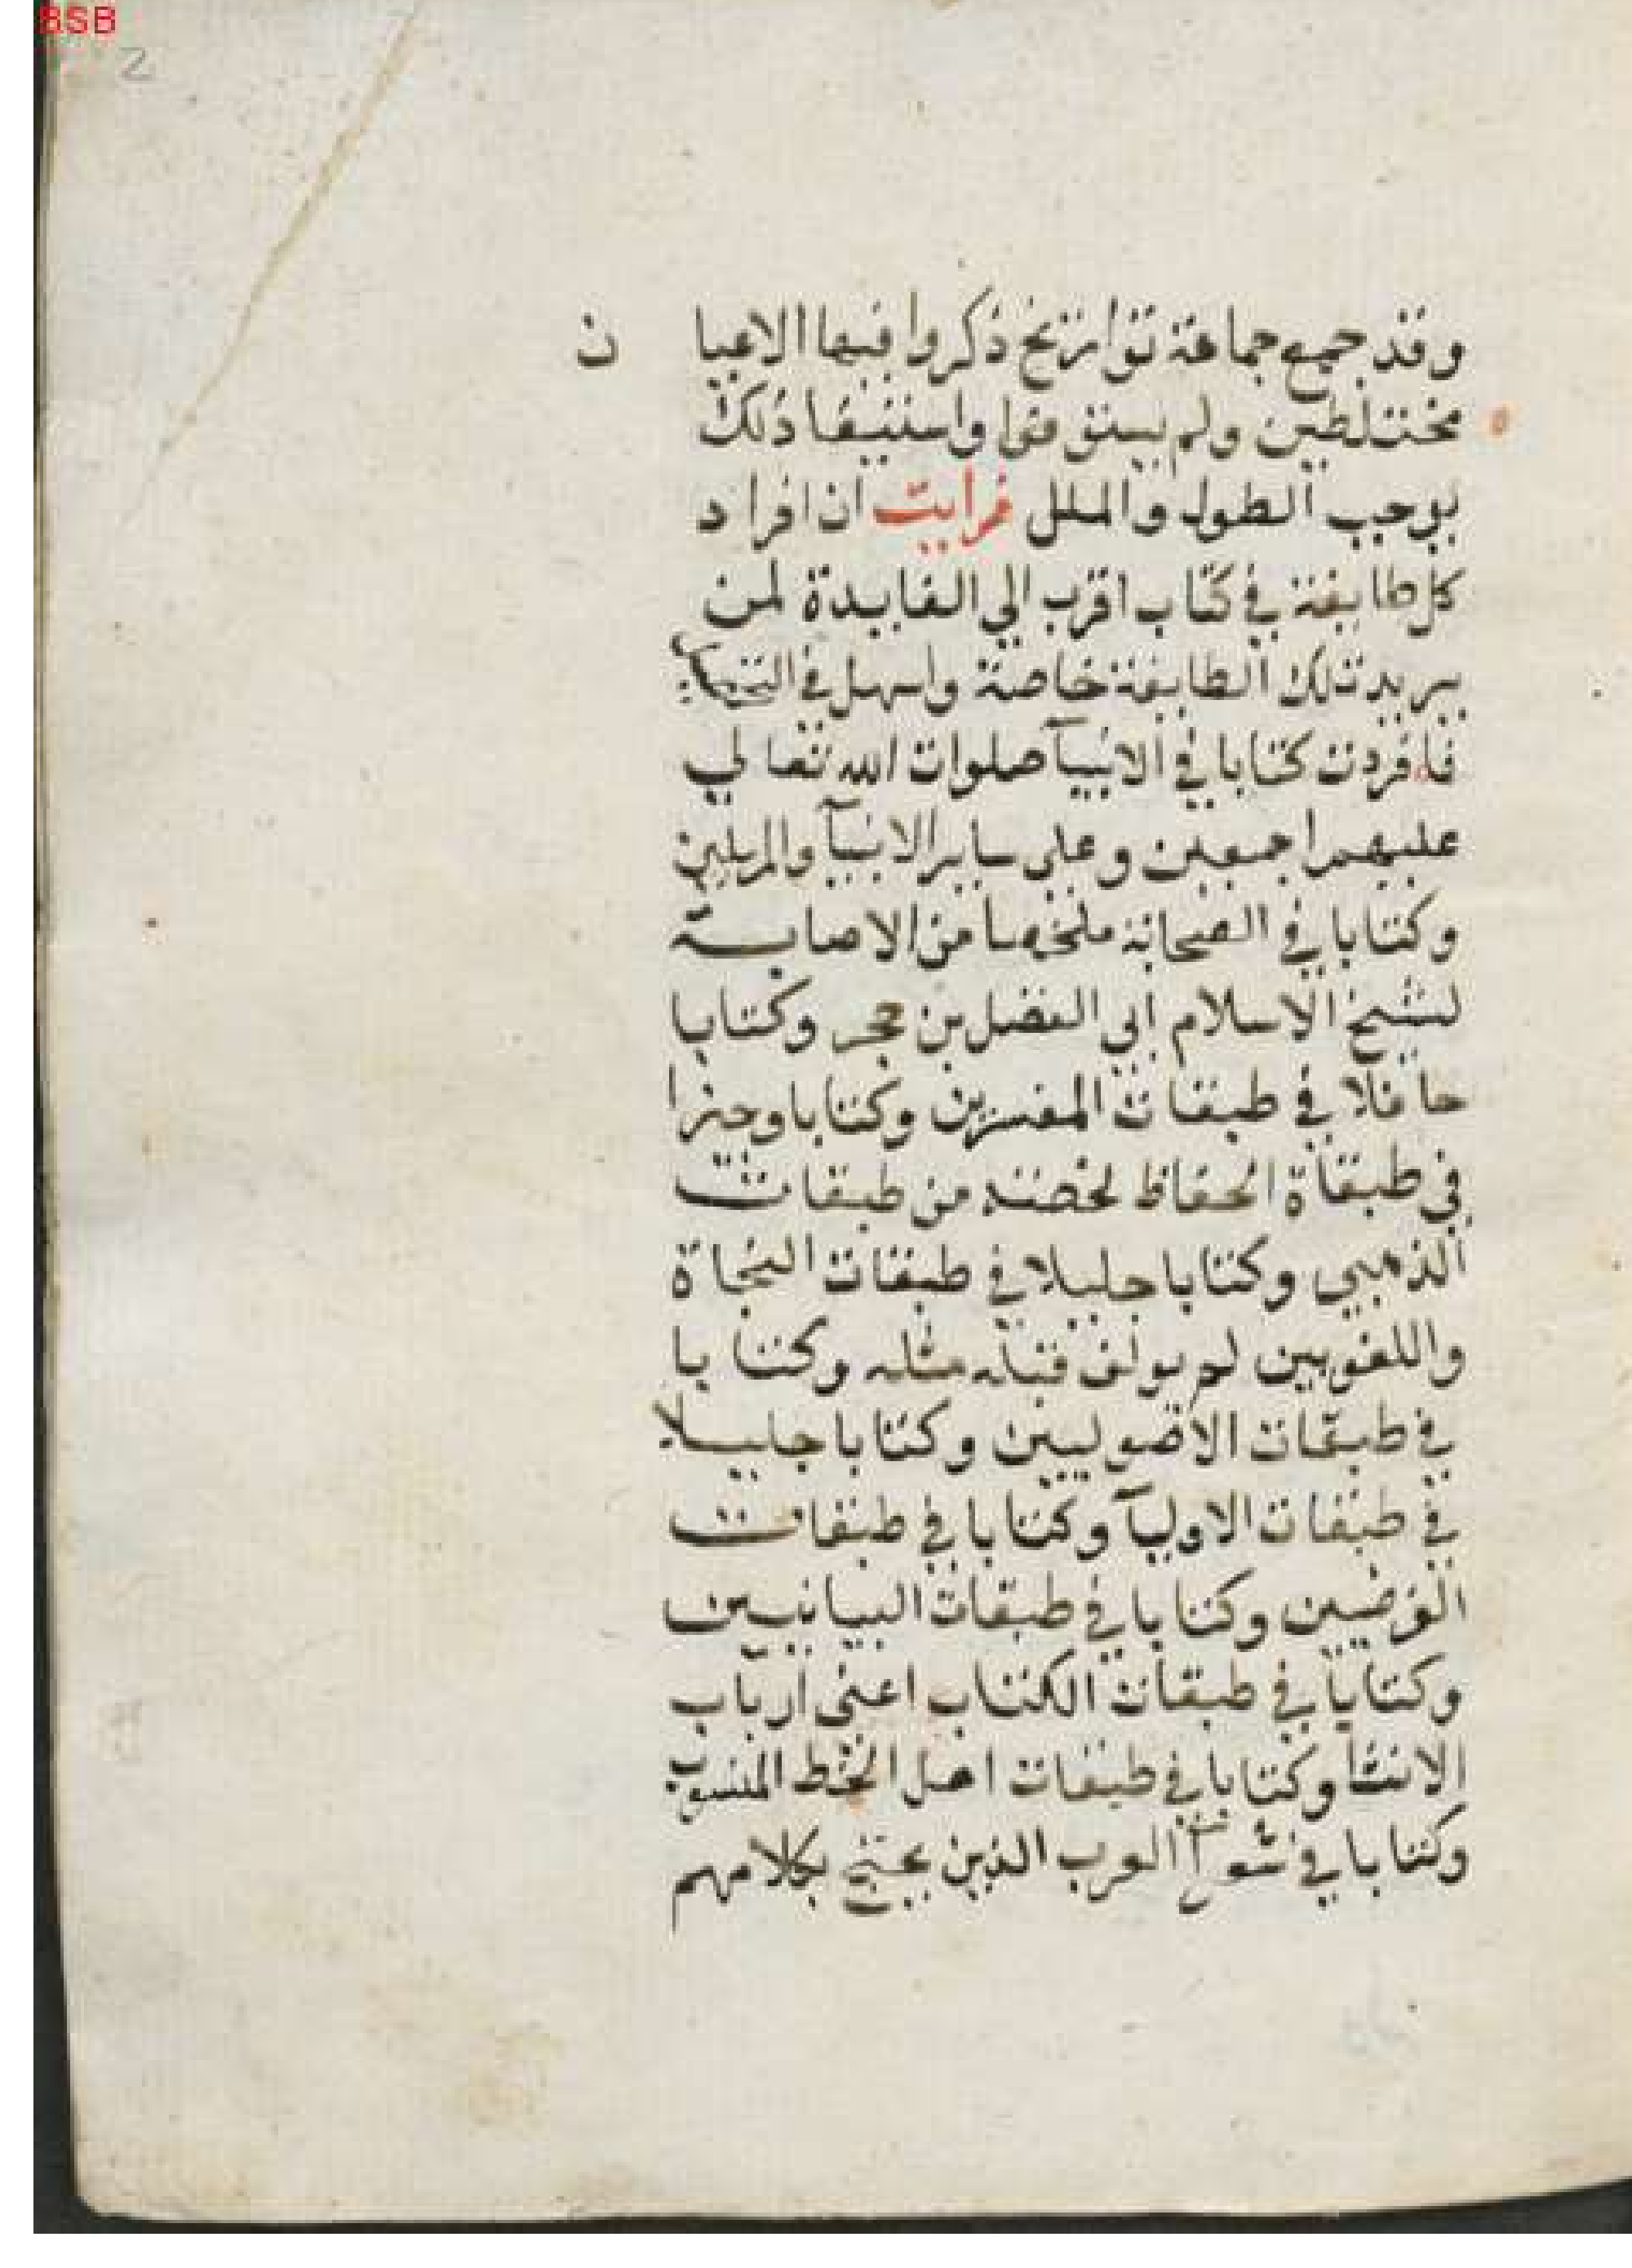 BSB
2
وقد جمع جماعة تواريخ ذكروا فيها الاعيا ن
مختلطين ولم يستوفوا واستيفا ذلك
يوجب الطول والملل فرايت ان افراد
كل طايفة في كتاب اقرب الي الفايدة لمن
يريد تلك الطايفة خاصة واسهل في
فافردت كتابا في الانبيآ صلوات الله تعالي
عليهم اجمعين وعلى ساير الانبيآ والمرسلين
وكتابا في الصحابة ملخصا من الاصابة
لشيخ الاسلام ابي الفضل بن حجر وكتابا
حافلا في طبقات المفسرين وكتابا وجيزا
في طبقاة الحفاظ لخصته من طبقات
الذهبي وكتابا جليلا في طبقات النحاة
واللغويين لم يولف قبله مثله وكتابا
في طبقات الاصوليين وكتابا جليلا
في طبقات الاوليآ وكتابا في طبقات
الفرضيين وكتابا في طبقات البيانيين
وكتابا في طبقات الكتاب اعني ارباب
الانشا وكتابا في طبقات اهل الخط المنسوب
وكتابا في شعرآ العرب الذين يحتج بكلامهم